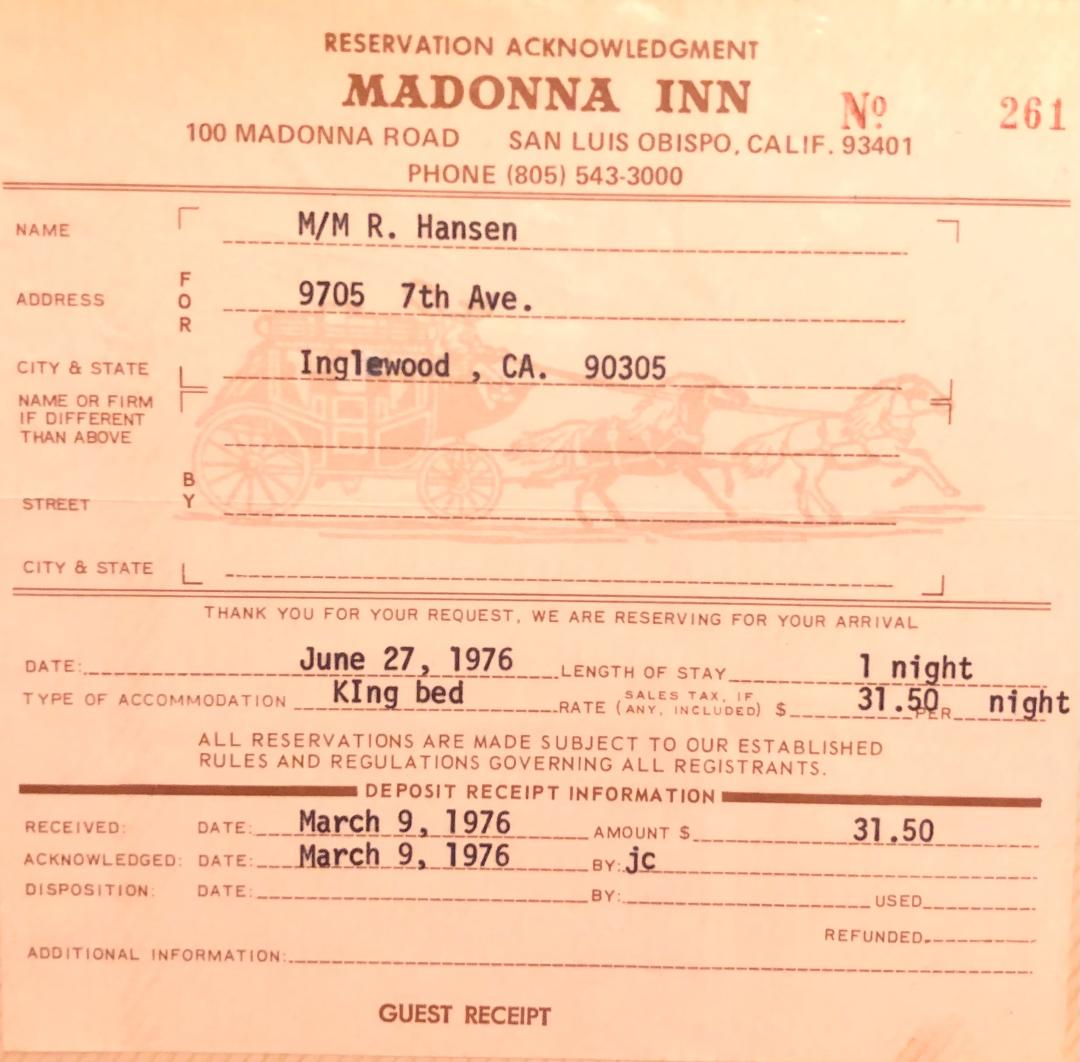 RESERVATION ACKNOWLEDGMENT
MADONNA INN
Nº 261
100 MADONNA ROAD SAN LUIS OBISPO, CALIF. 93401
PHONE (805) 543-3000
NAME M/M R. Hansen
FOR
ADDRESS 9705 7th Ave.
CITY & STATE Inglewood , CA. 90305
NAME OR FIRM
IF DIFFERENT
THAN ABOVE
BY
STREET
CITY & STATE
THANK YOU FOR YOUR REQUEST, WE ARE RESERVING FOR YOUR ARRIVAL
DATE: June 27, 1976 LENGTH OF STAY 1 night
TYPE OF ACCOMMODATION KIng bed RATE (SALES TAX, IF ANY, INCLUDED) $ 31.50 PER night
ALL RESERVATIONS ARE MADE SUBJECT TO OUR ESTABLISHED
RULES AND REGULATIONS GOVERNING ALL REGISTRANTS.
DEPOSIT RECEIPT INFORMATION
RECEIVED: DATE: March 9, 1976 AMOUNT $ 31.50
ACKNOWLEDGED: DATE: March 9, 1976 BY: jc
DISPOSITION: DATE: BY: USED
REFUNDED
ADDITIONAL INFORMATION:
GUEST RECEIPT